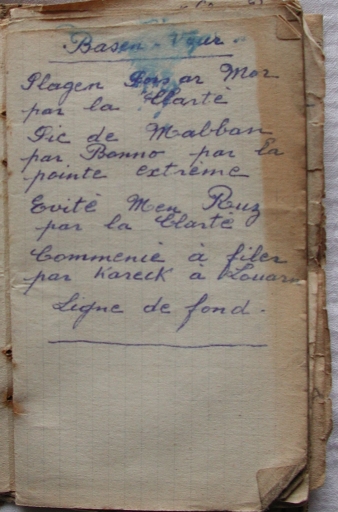 Basen-Veur.
Plagen Pors ar Mor
par la Clarté
Fic de Mabban
par Bonno par la
pointe extrème
Evité Men Ruz
par la Clarté
Commenié à filer
par Kareck à Louarn
Ligne de fond.